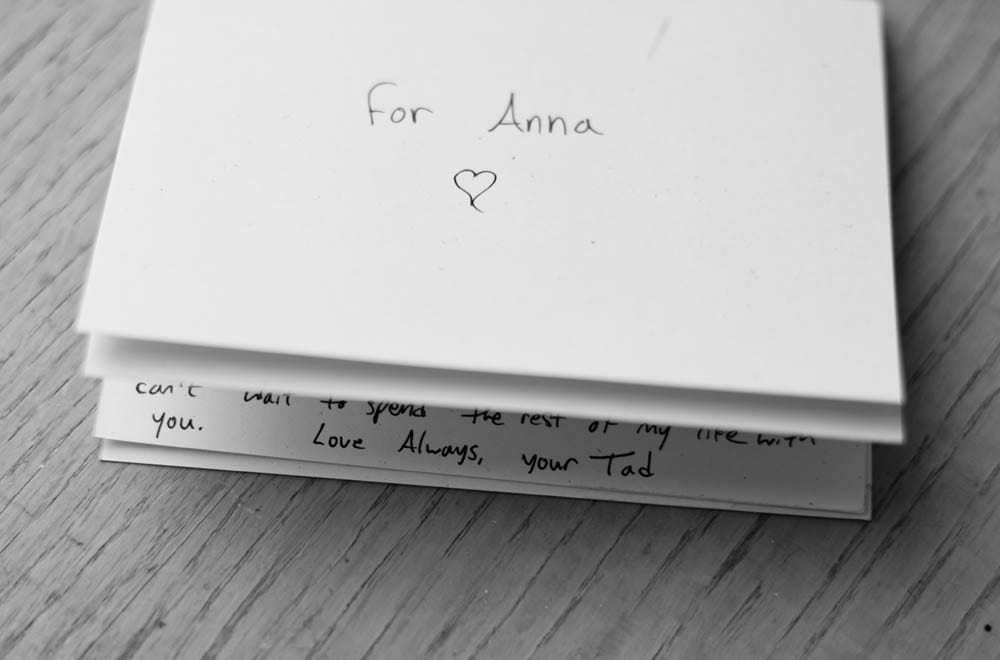 For Anna
can't wait to spend the rest of my life with
you. Love Always, your Tad